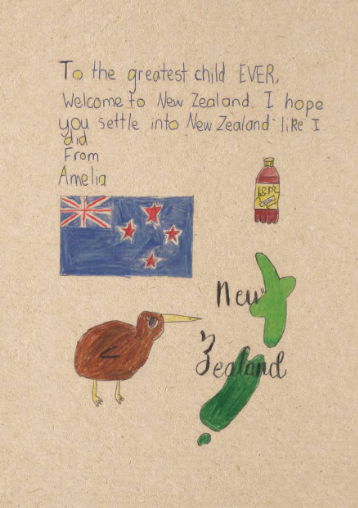 To the greatest child EVER,
Welcome to New Zealand. I hope
you settle into New Zealand like I
did
From
Amelia
New
Zealand